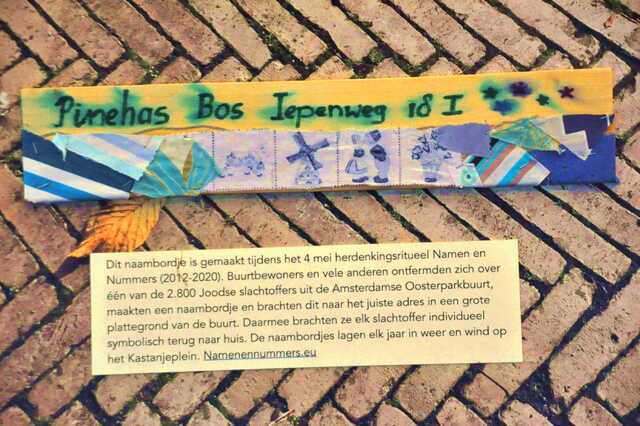 Pinehas Bos Iepenweg 18 I
Dit naambordje is gemaakt tijdens het 4 mei herdenkingsritueel Namen en
Nummers (2012-2020). Buurtbewoners en vele anderen ontfermden zich over
één van de 2.800 Joodse slachtoffers uit de Amsterdamse Oosterparkbuurt,
maakten een naambordje en brachten dit naar het juiste adres in een grote
plattegrond van de buurt. Daarmee brachten ze elk slachtoffer individueel
symbolisch terug naar huis. De naambordjes lagen elk jaar in weer en wind op
het Kastanjeplein. Namenennummers.eu